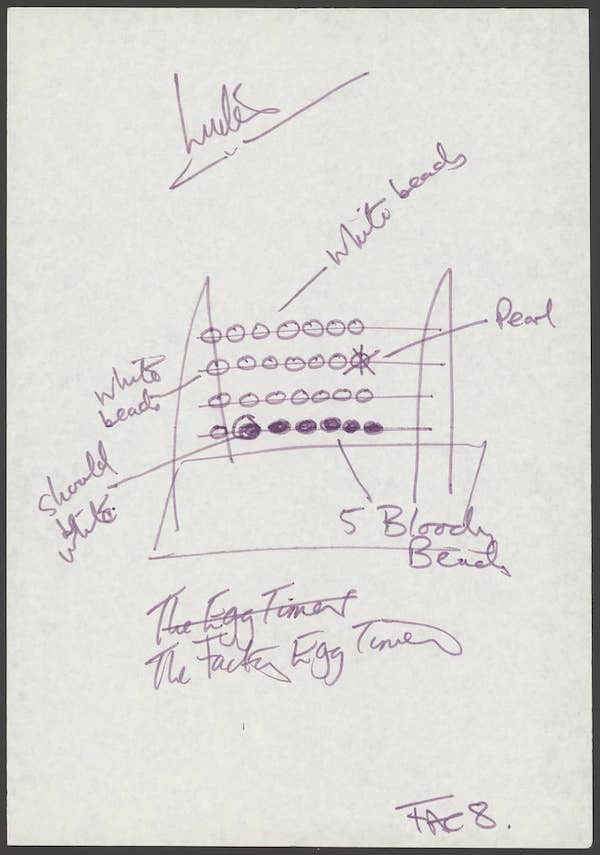 White beads
Pearl
White
beads
should
be
white.
5 Bloody
Beads
The Egg Timer
The Factory Egg Timer
FAC 8.